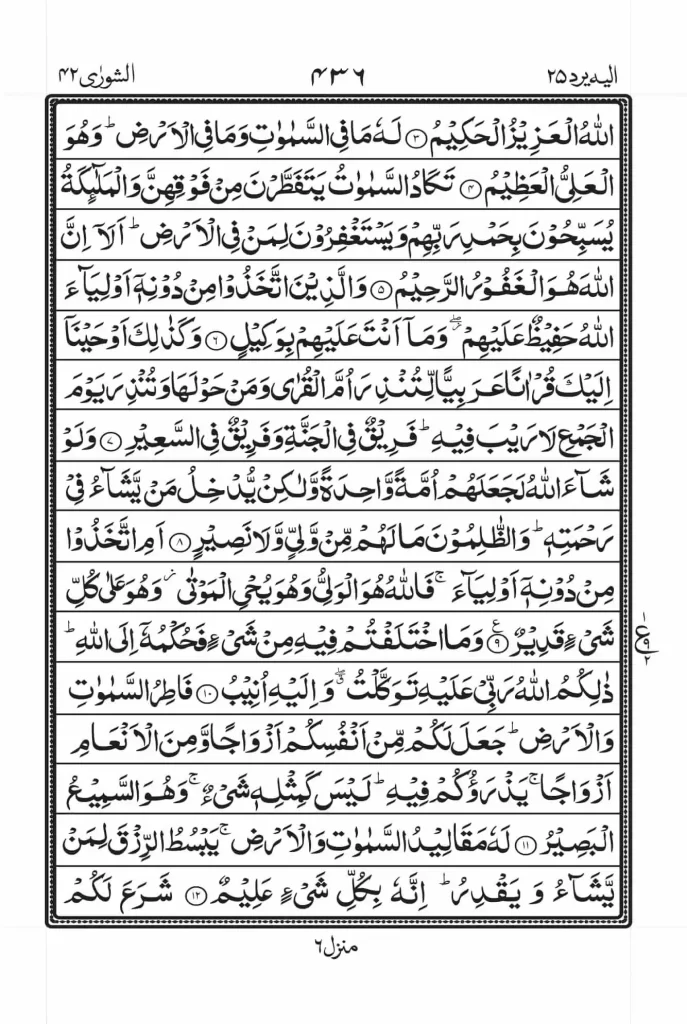 الیہ یرد ۲۵ ۴۳۶ الشورٰی ۴۲
اللّٰهُ الْعَزِيْزُ الْحَكِيْمُ ۝۳ لَهٗ مَا فِي السَّمٰوٰتِ وَمَا فِي الْاَرْضِ ؕ وَهُوَ
الْعَلِيُّ الْعَظِيْمُ ۝۴ تَكَادُ السَّمٰوٰتُ يَتَفَطَّرْنَ مِنْ فَوْقِهِنَّ وَالْمَلٰٓئِكَةُ
يُسَبِّحُوْنَ بِحَمْدِ رَبِّهِمْ وَيَسْتَغْفِرُوْنَ لِمَنْ فِي الْاَرْضِ ؕ اَلَاۤ اِنَّ
اللّٰهَ هُوَ الْغَفُوْرُ الرَّحِيْمُ ۝۵ وَالَّذِيْنَ اتَّخَذُوْا مِنْ دُوْنِهٖۤ اَوْلِيَآءَ
اللّٰهُ حَفِيْظٌ عَلَيْهِمْ ۖؗ وَمَاۤ اَنْتَ عَلَيْهِمْ بِوَكِيْلٍ ۝۶ وَكَذٰلِكَ اَوْحَيْنَاۤ
اِلَيْكَ قُرْاٰنًا عَرَبِيًّا لِّتُنْذِرَ اُمَّ الْقُرٰى وَمَنْ حَوْلَهَا وَتُنْذِرَ يَوْمَ
الْجَمْعِ لَا رَيْبَ فِيْهِ ؕ فَرِيْقٌ فِي الْجَنَّةِ وَفَرِيْقٌ فِي السَّعِيْرِ ۝۷ وَلَوْ
شَآءَ اللّٰهُ لَجَعَلَهُمْ اُمَّةً وَّاحِدَةً وَّلٰكِنْ يُّدْخِلُ مَنْ يَّشَآءُ فِيْ
رَحْمَتِهٖ ؕ وَالظّٰلِمُوْنَ مَا لَهُمْ مِّنْ وَّلِيٍّ وَّلَا نَصِيْرٍ ۝۸ اَمِ اتَّخَذُوْا
مِنْ دُوْنِهٖۤ اَوْلِيَآءَ ۚ فَاللّٰهُ هُوَ الْوَلِيُّ وَهُوَ يُحْيِ الْمَوْتٰى ؗ وَهُوَ عَلٰى كُلِّ
شَيْءٍ قَدِيْرٌ ۝۹ ع وَمَا اخْتَلَفْتُمْ فِيْهِ مِنْ شَيْءٍ فَحُكْمُهٗۤ اِلَى اللّٰهِ ؕ
۱ ع ۹ ۲
ذٰلِكُمُ اللّٰهُ رَبِّيْ عَلَيْهِ تَوَكَّلْتُ ۖۗ وَاِلَيْهِ اُنِيْبُ ۝۱۰ فَاطِرُ السَّمٰوٰتِ
وَالْاَرْضِ ؕ جَعَلَ لَكُمْ مِّنْ اَنْفُسِكُمْ اَزْوَاجًا وَّمِنَ الْاَنْعَامِ
اَزْوَاجًا ۚ يَذْرَؤُكُمْ فِيْهِ ؕ لَيْسَ كَمِثْلِهٖ شَيْءٌ ۚ وَهُوَ السَّمِيْعُ
الْبَصِيْرُ ۝۱۱ لَهٗ مَقَالِيْدُ السَّمٰوٰتِ وَالْاَرْضِ ۚ يَبْسُطُ الرِّزْقَ لِمَنْ
يَّشَآءُ وَيَقْدِرُ ؕ اِنَّهٗ بِكُلِّ شَيْءٍ عَلِيْمٌ ۝۱۲ شَرَعَ لَكُمْ
منزل ۶